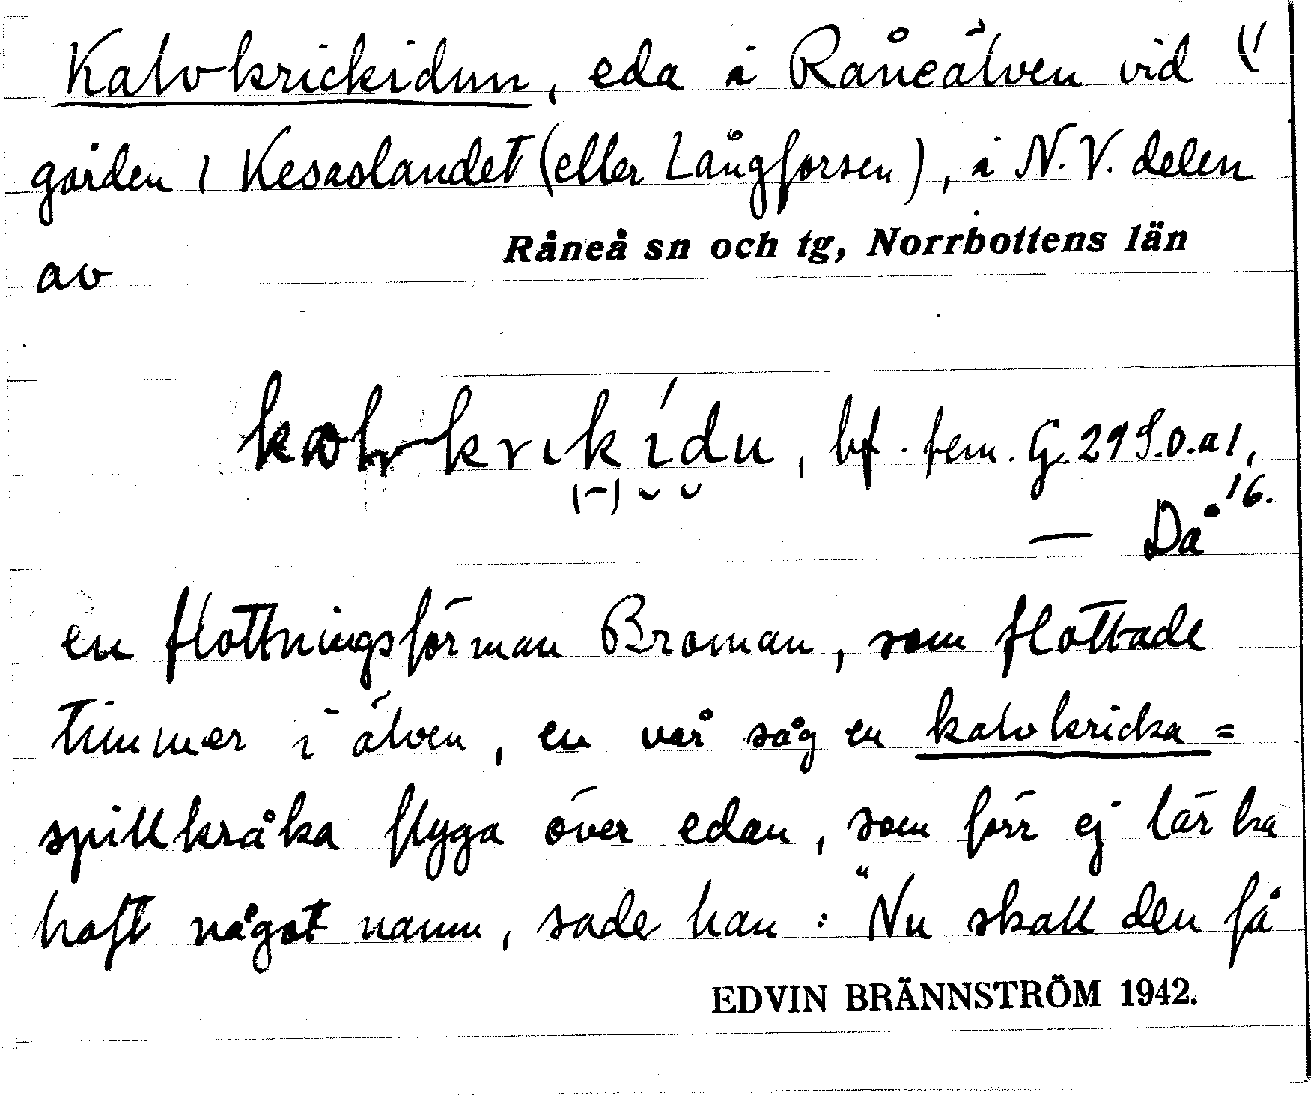 Kalvkrickidun, eda i Råneälven vid
gården 1 Kesaslandet (eller Långforsen), i N.V. delen
av Råneå sn och tg, Norrbottens län
bf. fem. G. 29 S.o.a1,
16.
— Då
en flottningsförman Broman, som flottade
timmer i älven, en vår såg en kalvkricka =
spillkråka flyga över edan, som förr ej lär ha
haft något namn, sade han: "Nu skall den få
EDVIN BRÄNNSTRÖM 1942.